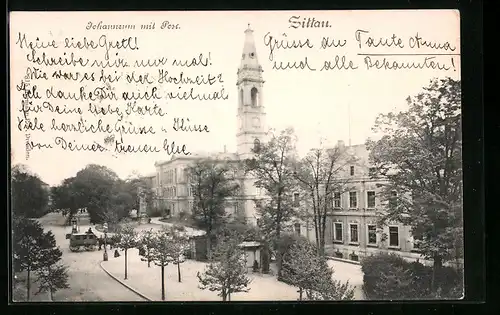 Johanneum mit Post.
Zittau.
Meine liebe Gretl!
Schreibe mir nur mal!
Wie war es bei der Hochzeit?
Ich danke Dir auch vielmal
für Deine liebe Karte.
Viele herrliche Grüsse u. Küsse
von Deiner treuen Else
Grüsse an Tante Anna
und alle Bekannten!